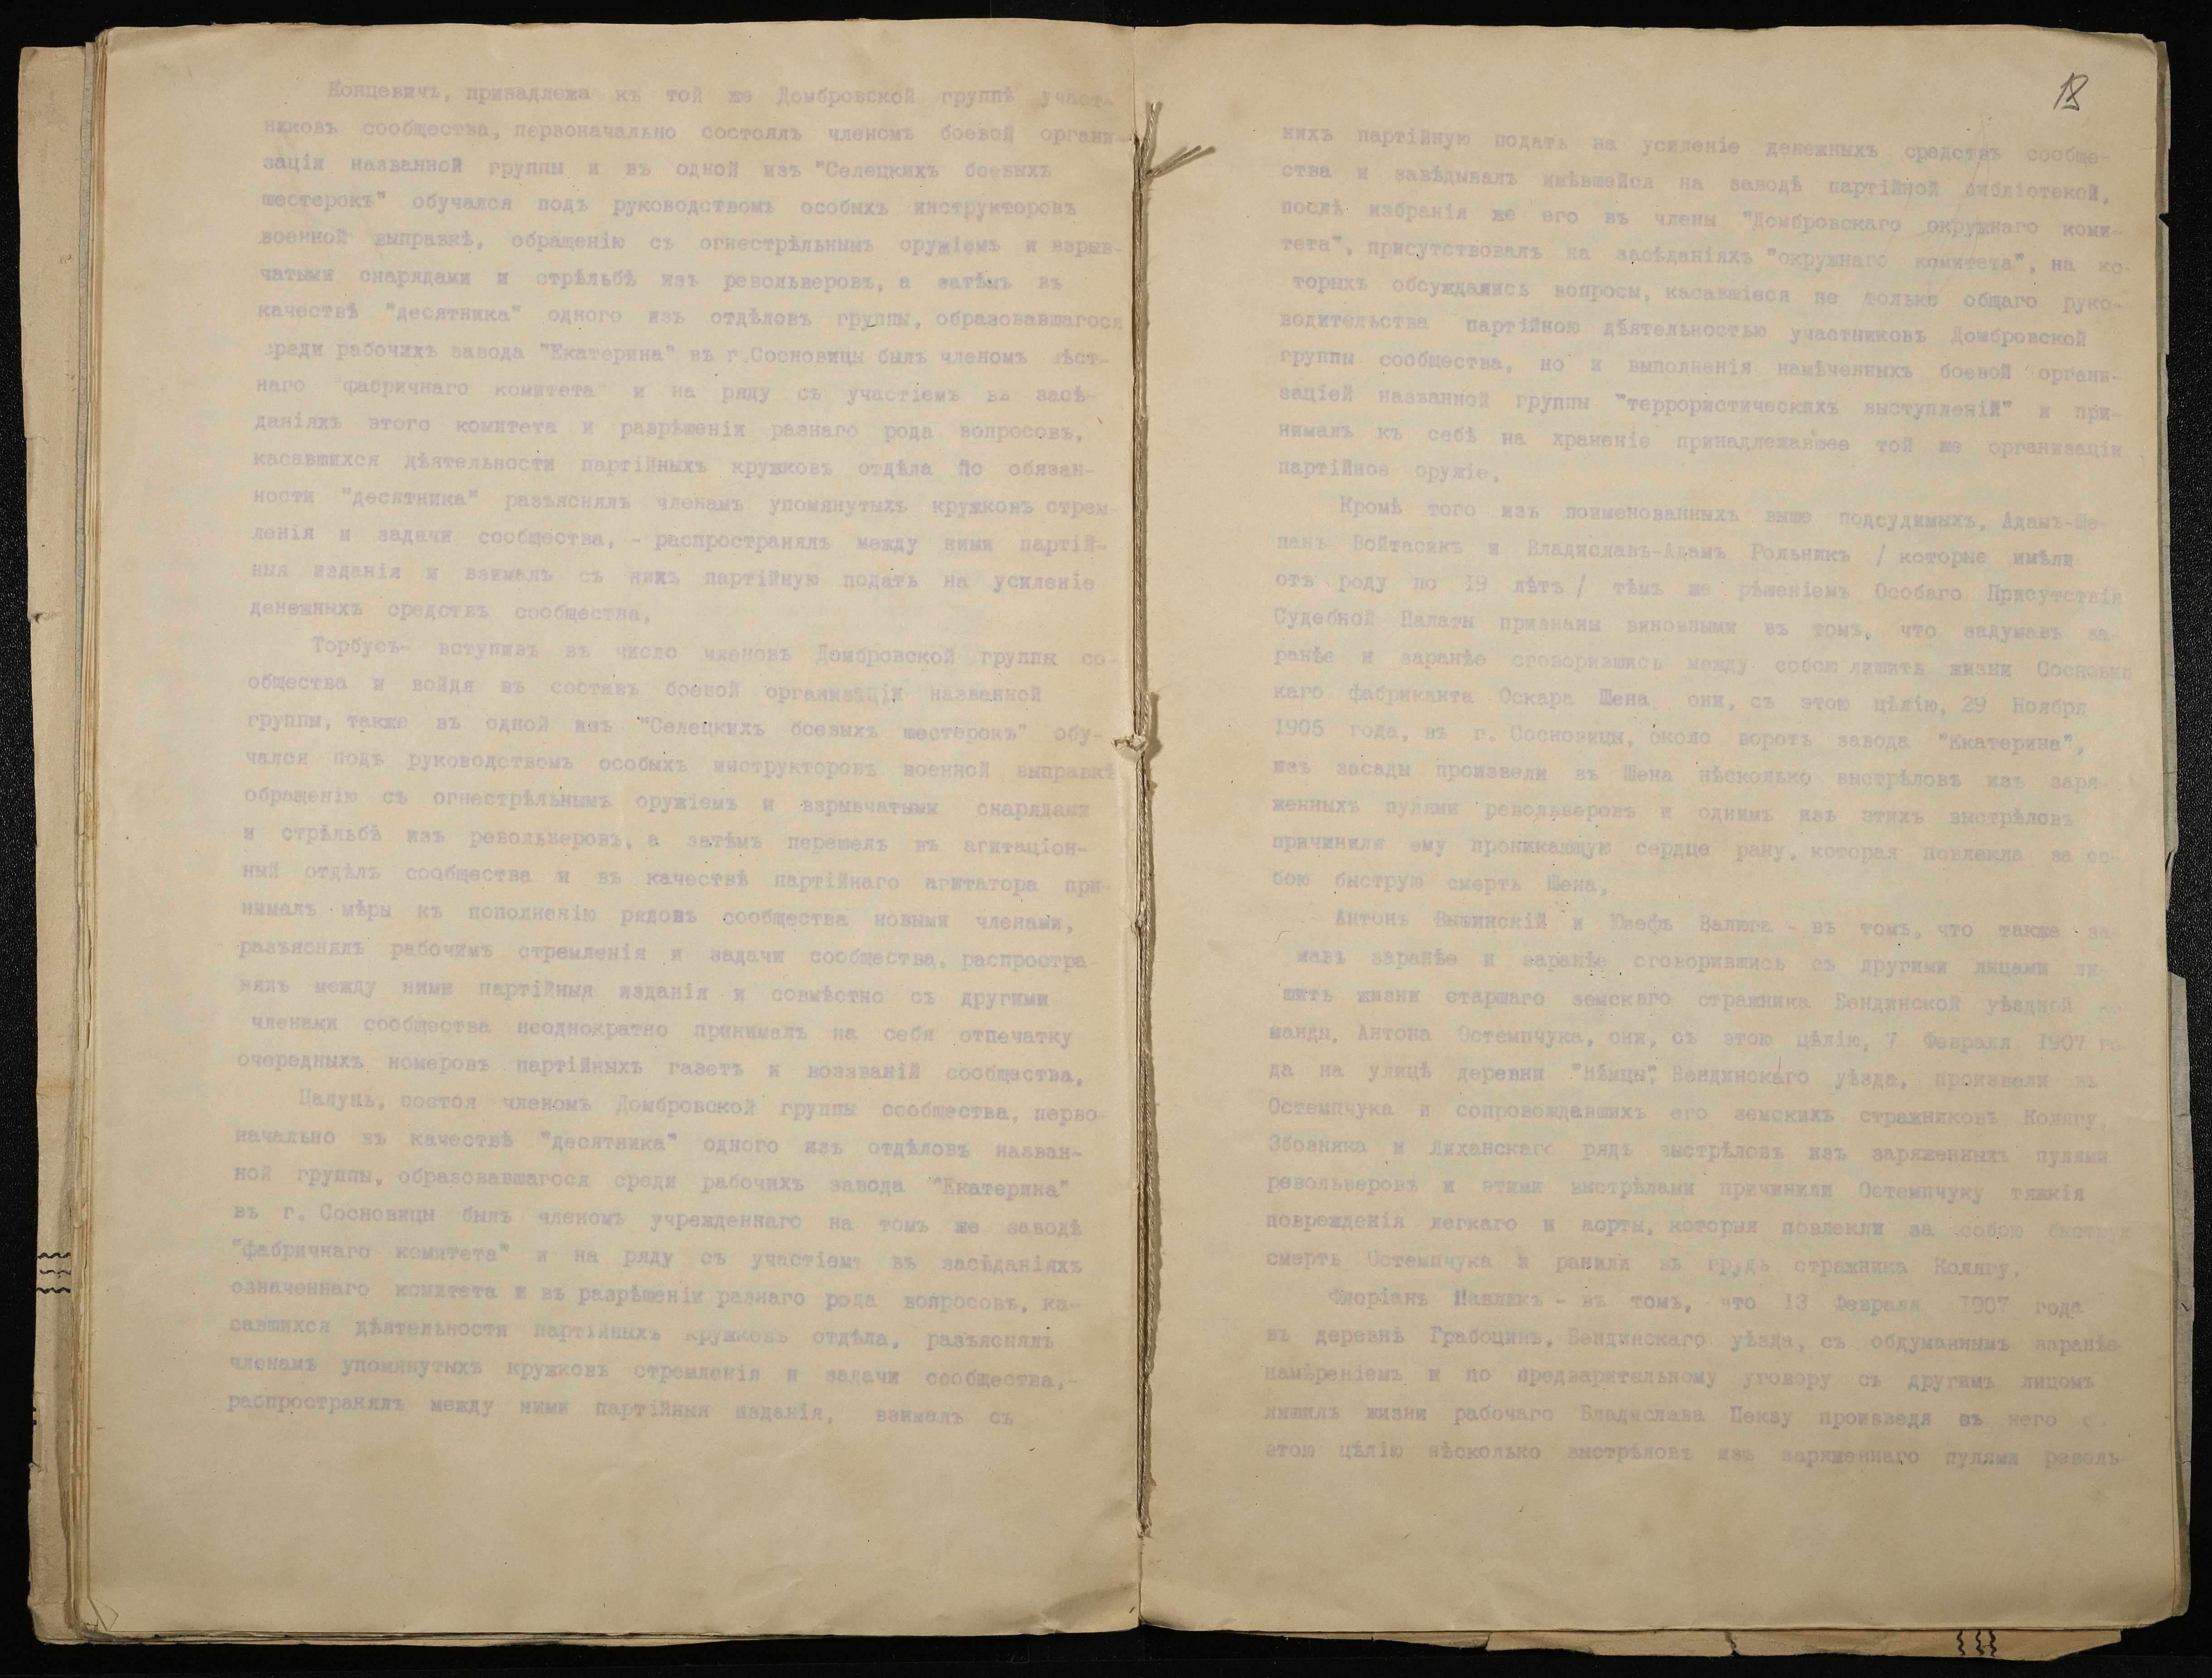 Концевичъ, принадлежа къ той же Домбровской группѣ участ-
никовъ сообщества, первоначально состоялъ членомъ боевой органи-
заціи названной группы и въ одной изъ "Селецкихъ боевыхъ
шестерокъ" обучался подъ руководствомъ особыхъ инструкторовъ
военной выправкѣ, обращенію съ огнестрѣльнымъ оружіемъ и взрыв-
чатыми снарядами и стрѣльбѣ изъ револьверовъ, а затѣмъ въ
качествѣ "десятника" одного изъ отдѣловъ группы, образовавшагося
среди рабочихъ завода "Екатерина" въ г.Сосновицы былъ членомъ мѣст-
наго "фабричнаго комитета" и на ряду съ участіемъ въ засѣ-
даніяхъ этого комитета и разрѣшеніи разнаго рода вопросовъ,
касавшихся дѣятельности партійныхъ кружковъ отдѣла по обязан-
ности "десятника" разъяснялъ членамъ упомянутыхъ кружковъ стрем-
ленія и задачи сообщества, - распространялъ между ними партій-
ныя изданія и взималъ съ нихъ партійную подать на усиленіе
денежныхъ средствъ сообщества.
Торбусъ- вступивъ въ число членовъ Домбровской группы со-
общества и войдя въ составъ боевой организаціи названной
группы, также въ одной изъ "Селецкихъ боевыхъ шестерокъ" обу-
чался подъ руководствомъ особыхъ инструкторовъ военной выправкѣ
обращенію съ огнестрѣльнымъ оружіемъ и взрывчатыми снарядами
и стрѣльбѣ изъ револьверовъ, а затѣмъ перешелъ въ агитаціон-
ный отдѣлъ сообщества и въ качествѣ партійнаго агитатора при-
нималъ мѣры къ пополненію рядовъ сообщества новыми членами,
разъяснялъ рабочимъ стремленія и задачи сообщества, распростра-
нялъ между ними партійныя изданія и совмѣстно съ другими
членами сообщества неоднократно принималъ на себя отпечатку
очередныхъ номеровъ партійныхъ газетъ и воззваній сообщества.
Цалунь, состоя членомъ Домбровской группы сообщества, перво-
начально въ качествѣ "десятника" одного изъ отдѣловъ назван-
ной группы, образовавшагося среди рабочихъ завода "Екатерина"
въ г. Сосновицы былъ членомъ учрежденнаго на томъ же заводѣ
"фабричнаго комитета" и на ряду съ участіемъ въ засѣданіяхъ
означеннаго комитета и въ разрѣшеніи разнаго рода вопросовъ, ка-
савшихся дѣятельности партійныхъ кружковъ отдѣла, разъяснялъ
членамъ упомянутыхъ кружковъ стремленія и задачи сообщества,-
распространялъ между ними партійныя изданія, взималъ съ
18
нихъ партійную подать на усиленіе денежныхъ средствъ сообще-
ства и завѣдывалъ имѣвшейся на заводѣ партійной библіотекой,
послѣ избранія же его въ члены "Домбровскаго окружнаго коми-
тета", присутствовалъ на засѣданіяхъ "окружнаго комитета", на ко-
торыхъ обсуждались вопросы, касавшіеся не только общаго руко-
водительства партійною дѣятельностью участниковъ Домбровской
группы сообщества, но и выполненія намѣченныхъ боевой органи-
заціей названной группы "террористическихъ выступленій" и при-
нималъ къ себѣ на храненіе принадлежавшее той же организаціи
партійное оружіе.
Кромѣ того изъ поименованныхъ выше подсудимыхъ, Адамъ-Ще-
панъ Войтасикъ и Владиславъ-Адамъ Рольникъ / которые имѣли
отъ роду по 19 лѣтъ / тѣмъ же рѣшеніемъ Особаго Присутствія
Судебной Палаты признаны виновными въ томъ, что задумавъ за-
ранѣе и заранѣе сговорившись между собою лишить жизни Сосновиц
каго фабриканта Оскара Шена они, съ этою цѣлію, 29 Ноября
1905 года, въ г. Сосновицы, около воротъ завода "Екатерина",
изъ засады произвели въ Шена нѣсколько выстрѣловъ изъ заря-
женныхъ пулями револьверовъ и однимъ изъ этихъ выстрѣловъ
причинили ему проникающую сердце рану, которая повлекла за со-
бою быструю смерть Шена.
Антонъ Вышинскій и Юзефъ Валюга - въ томъ, что также за-
мавъ заранѣе и заранѣе сговорившись съ другими лицами ли-
шить жизни старшаго земскаго стражника Бендинской уѣздной ко
манды, Антона Остемпчука, они, съ этою цѣлію, 7 Февраля 1907 го-
да на улицѣ деревни "Нѣмцы", Бендинскаго уѣзда, произвели въ
Остемпчука и сопровождавшихъ его земскихъ стражниковъ Колягу,
Збозняка и Лиханскаго рядъ выстрѣловъ изъ заряженныхъ пулями
револьверовъ и этими выстрѣлами причинили Остемпчуку тяжкія
поврежденія легкаго и аорты, которыя повлекли за собою быструю
смерть Остемпчука и ранили въ грудь стражника Колягу.
Флоріанъ Павликъ - въ томъ, что 13 Февраля 1907 года
въ деревнѣ Грабоцинъ, Бендинскаго уѣзда, съ обдуманнымъ заранѣе
намѣреніемъ и по предварительному уговору съ другимъ лицомъ
лишилъ жизни рабочаго Владислава Пекзу произведя въ него с
этою цѣлію нѣсколько выстрѣловъ изъ заряженнаго пулями револь-